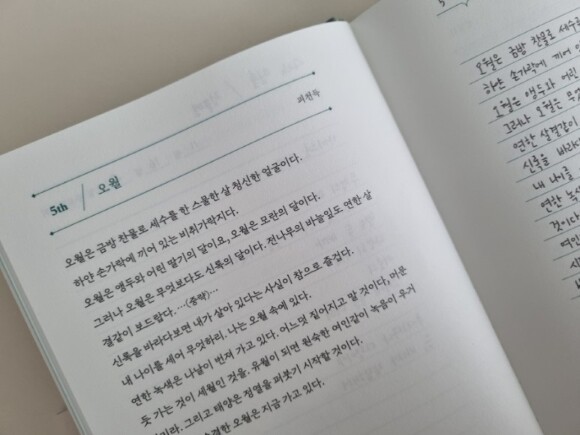 피천득
5th / 오월
오월은 금방 찬물로 세수를 한 스물한 살 청신한 얼굴이다.
하얀 손가락에 끼어 있는 비취가락지다.
오월은 앵두와 어린 딸기의 달이요, 오월은 모란의 달이다.
그러나 오월은 무엇보다도 신록의 달이다. 전나무의 바늘잎도 연한 살
결같이 보드랍다. …(중략)…
신록을 바라다보면 내가 살아 있다는 사실이 참으로 즐겁다.
내 나이를 세어 무엇하리. 나는 오월 속에 있다.
연한 녹색은 나날이 번져 가고 있다. 어느덧 짙어지고 말 것이다. 머문
듯 가는 것이 세월인 것을. 유월이 되면 원숙한 여인같이 녹음이 우거
이리라. 그리고 태양은 정열을 퍼붓기 시작할 것이다.
오월은 지금 가고 있다.
5
오월은 금방 찬물로 세수를
하얀 손가락에 끼어
오월은 앵두와 어린
그러나 오월은 무엇
연한 살결같이
신록을 바라다
내 나이를
연한 녹
것이다